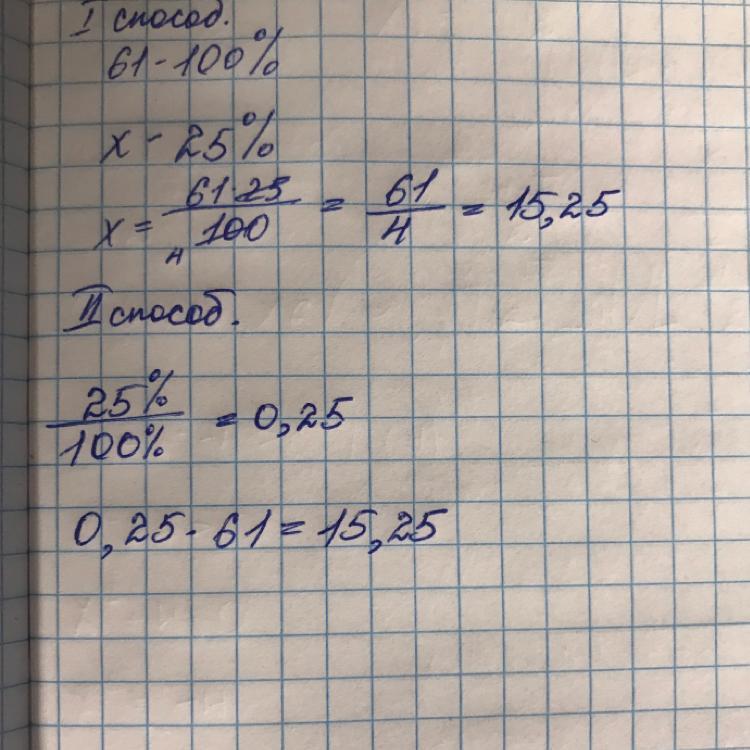 I способ.
61 - 100%
x - 25%
x = 61·25/100 = 61/4 = 15,25
4
II способ.
25%/100% = 0,25
0,25 · 61 = 15,25